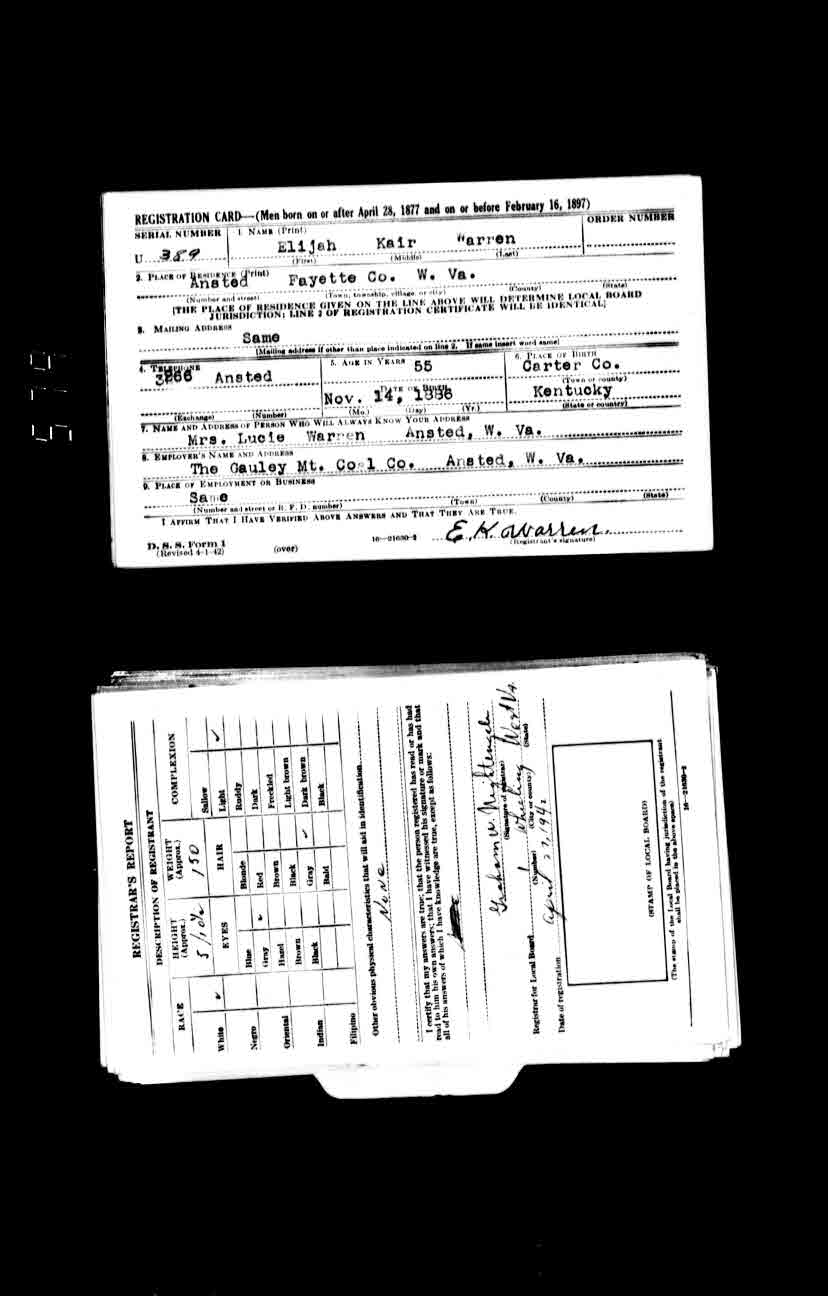 579
REGISTRATION CARD—(Men born on or after April 28, 1877 and on or before February 16, 1897)
SERIAL NUMBER
1. NAME (Print)
ORDER NUMBER
U 389
Elijah Kair Warren
(First) (Middle) (Last)
2. PLACE OF RESIDENCE (Print)
Ansted Fayette Co. W. Va.
(Number and street) (Town, township, village, or city) (County) (State)
[THE PLACE OF RESIDENCE GIVEN ON THE LINE ABOVE WILL DETERMINE LOCAL BOARD
JURISDICTION; LINE 2 OF REGISTRATION CERTIFICATE WILL BE IDENTICAL]
3. MAILING ADDRESS
Same
[Mailing address if other than place indicated on line 2. If same insert word same]
4. TELEPHONE
5. AGE IN YEARS 55
6. PLACE OF BIRTH
Ansted
Carter Co.
DATE OF BIRTH
(Town or county)
Nov. 14, 1886
Kentucky
(Exchange) (Number)
(Mo.) (Day) (Yr.)
(State or country)
7. NAME AND ADDRESS OF PERSON WHO WILL ALWAYS KNOW YOUR ADDRESS
Mrs. Lucie Warren Ansted, W. Va.
8. EMPLOYER'S NAME AND ADDRESS
The Gauley Mt. Coal Co. Ansted, W. Va.
9. PLACE OF EMPLOYMENT OR BUSINESS
Same
(Number and street or R. F. D. number) (Town) (County) (State)
I AFFIRM THAT I HAVE VERIFIED ABOVE ANSWERS AND THAT THEY ARE TRUE.
E. K. Warren
D. S. S. Form 1
(Revised 4-1-42) (over) 16—21630-2 (Registrant's signature)
REGISTRAR'S REPORT
DESCRIPTION OF REGISTRANT
RACE
HEIGHT (Approx.)
WEIGHT (Approx.)
COMPLEXION
5/10½
150
Sallow
White ✓
EYES
HAIR
Light ✓
Blue
Blonde
Ruddy
Negro
Gray ✓
Red
Dark
Hazel
Brown
Freckled
Oriental
Brown
Black
Light brown
Black
Gray ✓
Dark brown
Indian
Bald
Black
Filipino
Other obvious physical characteristics that will aid in identification
None
I certify that my answers are true; that the person registered has read or has had
read to him his own answers; that I have witnessed his signature or mark and that
all of his answers of which I have knowledge are true, except as follows:
Graham W.
(Signature of registrar)
Registrar for Local Board 1 Wheeling West Va.
(Number) (City or county) (State)
Date of registration April 27, 1942
(STAMP OF LOCAL BOARD)
(The stamp of the Local Board having jurisdiction of the registrant
shall be placed in the above space)
16—21630-2